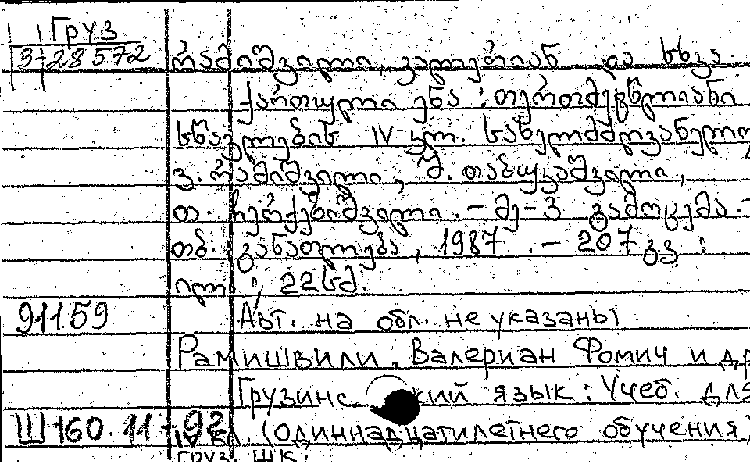 Груз
3-28572
რამიშვილი, ვალერიან და სხვა
ქართული ენა : თერთმეტწლიანი
სწავლების IV კლ. სახელმძღვანელო
ვ. რამიშვილი, შ. თაბუკაშვილი,
თ. ჩერქეზიშვილი. - მე-3 გამოცემა. -
თბ. განათლება, 1987. - 207 გვ :
ილ ; 22 სმ.
91159 Авт. на обл. не указаны
Рамишвили, Валериан Фомич и др
Грузинский язык : Учеб. для
Ш160.11-92 кл. (одиннадцатилетнего обучения)
груз. шк.